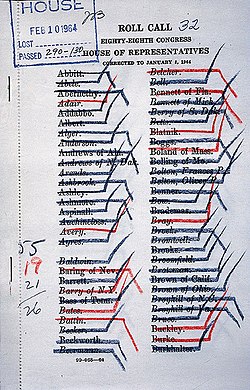 HOUSE
FEB 10 1964
LOST
PASSED 290-130
32
ROLL CALL
EIGHTY-EIGHTH CONGRESS
HOUSE OF REPRESENTATIVES
CORRECTED TO JANUARY 3, 1964
Abbitt
Abele
Abernethy
Adair
Addabbo
Albert
Alger
Anderson
Andrews of Ala.
Andrews of N. Dak.
Arends
Ashbrook
Ashley
Ashmore
Aspinall
Auchincloss
Avery
Ayres
Baldwin
Baring of Nev.
Barrett
Barry of N.Y.
Bass of Tenn.
Bates
Battin
Becker
Beckworth
Beermann
Belcher
Bell
Bennett of Fla.
Bennett of Mich.
Berry of S. Dak.
Betts
Blatnik
Boggs
Boland of Mass.
Bolling of Mo.
Bolton, Frances P.
Bolton, Oliver P.
Bow
Brademas
Bray
Brock
Bromwell
Brooks
Broomfield
Brotzman
Brown of Calif.
Brown of Ohio
Broyhill of N.C.
Broyhill of Va.
Bruce
Buckley
Burke
Burkhalter
55
19
21
26